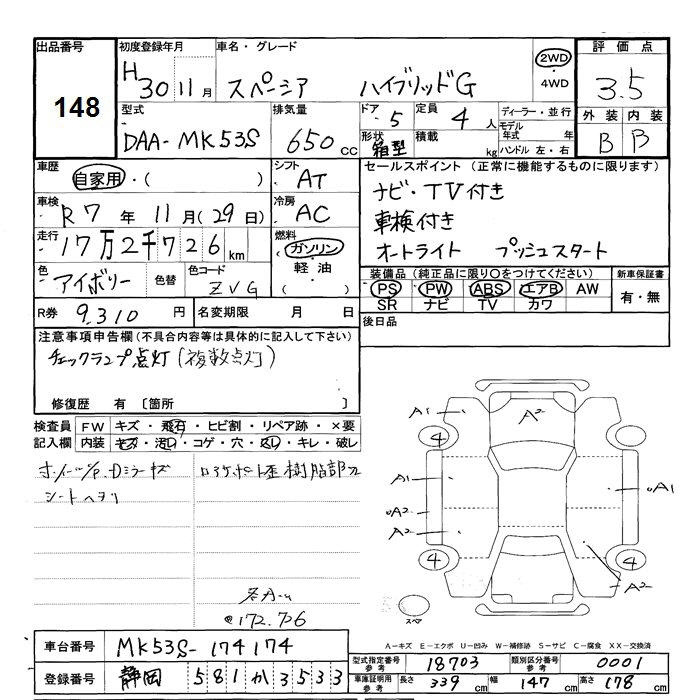 出品番号
148
初度登録年月
H30 11月
車名・グレード
スペーシア ハイブリッドG
2WD
・
4WD
評価点
3.5
外装 内装
B B
型式
DAA-MK53S
排気量
650 cc
ドア 5
定員 4 人
形状 箱型
積載 kg
ディーラー・並行
モデル年式 年
ハンドル 左・右
車歴
自家用・( )
シフト AT
車検
R7年11月(29日)
冷房 AC
走行
17万2千726km
燃料
ガソリン
軽油
( )
色
アイボリー
色替
色コード
ZVG
R券 9,310 円
名変期限 月 日
セールスポイント(正常に機能するものに限ります)
ナビ・TV付き
車検付き
オートライト プッシュスタート
装備品(純正品に限り○をつけてください)
PS PW ABS エアB AW
SR ナビ TV カワ
新車保証書
有・無
後日品
注意事項申告欄(不具合内容等は具体的に記入して下さい)
チェックランプ点灯(複数点灯)
修復歴 有〔箇所 〕
検査員 FW キズ・飛石・ヒビ割・リペア跡・×要
記入欄 内装 キズ・汚れ・コゲ・穴・スレ・キレ・破レ
ホイールP.Dミラーキズ
シートヘタリ
172.726
A2
A1
4
4
A1
A2
A2
A1
4
4
A2
スペア
A-キズ E-エクボ U-凹み W-補修跡 S-サビ C-腐食 XX-交換済
車台番号 MK53S-174174
登録番号 静岡 581 か 3533
型式指定番号 参考 18703
類別区分番号 参考 0001
車庫証明用 参考 長さ 339cm 幅 147cm 高さ 178cm